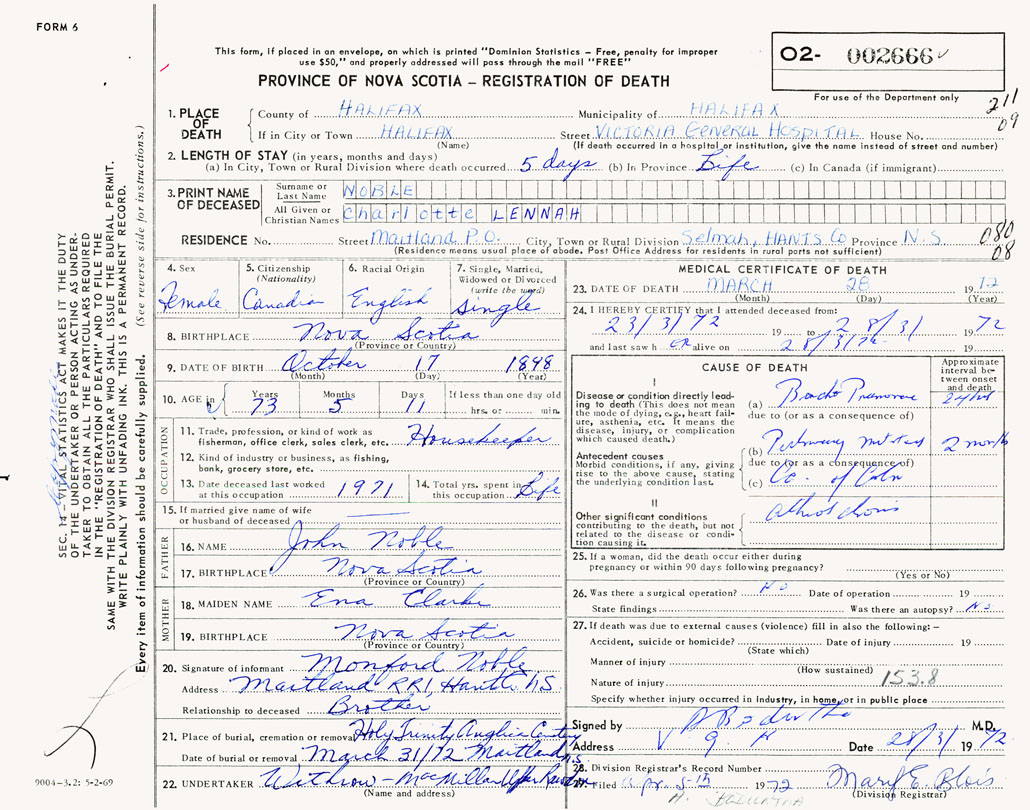 FORM 6
This form, if placed in an envelope, on which is printed "Dominion Statistics – Free, penalty for improper
use $50," and properly addressed will pass through the mail "FREE"
PROVINCE OF NOVA SCOTIA – REGISTRATION OF DEATH
O2- 002666
For use of the Department only
211
09
1. PLACE OF DEATH
County of HALIFAX Municipality of HALIFAX
If in City or Town HALIFAX Street VICTORIA GENERAL HOSPITAL House No.
(Name) (If death occurred in a hospital or institution, give the name instead of street and number)
2. LENGTH OF STAY (in years, months and days)
(a) In City, Town or Rural Division where death occurred 5 days (b) In Province Life (c) In Canada (if immigrant)
3. PRINT NAME OF DECEASED
Surname or Last Name NOBLE
All Given or Christian Names Charlotte LENNAH
RESIDENCE No. Street Maitland P.O. City, Town or Rural Division Selmah, HANTS Co Province N.S
080
08
(Residence means usual place of abode. Post Office Address for residents in rural parts not sufficient)
SEC. 14 – VITAL STATISTICS ACT MAKES IT THE DUTY
OF THE UNDERTAKER OR PERSON ACTING AS UNDER-
TAKER TO OBTAIN ALL THE PARTICULARS REQUIRED
IN THE "REGISTRATION OF DEATH" AND TO FILE THE
SAME WITH THE DIVISION REGISTRAR WHO SHALL ISSUE THE BURIAL PERMIT.
WRITE PLAINLY WITH UNFADING INK. THIS IS A PERMANENT RECORD.
Every item of information should be carefully supplied. (See reverse side for instructions.)
4. Sex Female
5. Citizenship (Nationality) Canadian
6. Racial Origin English
7. Single, Married, Widowed or Divorced (write the word) Single
8. BIRTHPLACE Nova Scotia
(Province or Country)
9. DATE OF BIRTH October 17 1898
(Month) (Day) (Year)
10. AGE in Years 73 Months 5 Days 11 If less than one day old hrs. or min.
OCCUPATION
11. Trade, profession, or kind of work as
fisherman, office clerk, sales clerk, etc. Housekeeper
12. Kind of industry or business, as fishing,
bank, grocery store, etc.
13. Date deceased last worked
at this occupation 1971
14. Total yrs. spent in
this occupation Life
15. If married give name of wife
or husband of deceased
FATHER
16. NAME John Noble
17. BIRTHPLACE Nova Scotia
(Province or Country)
MOTHER
18. MAIDEN NAME Ena Clarke
19. BIRTHPLACE Nova Scotia
(Province or Country)
20. Signature of informant Monford Noble
Address Maitland RR1, Hants N.S.
Relationship to deceased Brother
21. Place of burial, cremation or removal Holy Trinity Anglican
Date of burial or removal March 31/72 Maitland
22. UNDERTAKER Withrow – MacMillan Upper
(Name and address)
9004-3.2: 5-2-69
MEDICAL CERTIFICATE OF DEATH
23. DATE OF DEATH MARCH 28 1972
(Month) (Day) (Year)
24. I HEREBY CERTIFY that I attended deceased from:
23/3/72 19 to 28/3/ 1972
and last saw h er alive on 28/3/72 19
CAUSE OF DEATH
Approximate interval between onset and death
I
Disease or condition directly lead-
ing to death (This does not mean
the mode of dying, e.g., heart fail-
ure, asthenia, etc. It means the
disease, injury, or complication
which caused death.)
(a)
due to (or as a consequence of)
Antecedent causes
Morbid conditions, if any, giving
rise to the above cause, stating
the underlying condition last.
(b) 2 months
due to (or as a consequence of)
(c) Ca. of Colon
II
Other significant conditions
contributing to the death, but not
related to the disease or condi-
tion causing it.
25. If a woman, did the death occur either during
pregnancy or within 90 days following pregnancy?
(Yes or No)
26. Was there a surgical operation? No Date of operation 19
State findings Was there an autopsy? No
27. If death was due to external causes (violence) fill in also the following: –
Accident, suicide or homicide? Date of injury 19
(State which)
Manner of injury
(How sustained)
Nature of injury 153.8
Specify whether injury occurred in industry, in home, or in public place
Signed by M.D.
Address V G H Date 28/3/ 1972
28. Division Registrar's Record Number
29. Filed Apr. 5th 1972 Mary E. Blois
(Division Registrar)